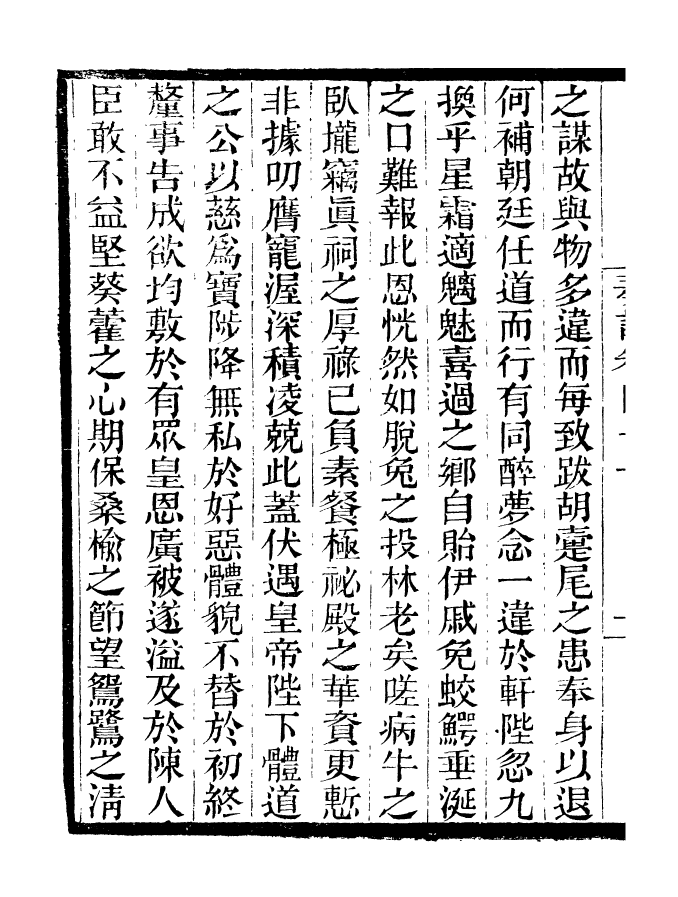 之謀故與物多違而每致跋胡疐尾之患奉身以退
何補朝廷任道而行有同醉夢念一違於軒陛忽九
換乎星霜適魑魅喜過之鄉自貽伊戚免蛟鰐垂涎
之口難報此恩恍然如脫兔之投林老矣嗟病牛之
臥壠竊眞祠之厚祿已負素餐極祕殿之華資更慙
非據叨膺寵渥深積凌兢此蓋伏遇皇帝陛下體道
之公以慈爲寶陟降無私於好惡體貌不替於初終
釐事告成欲均敷於有眾皇恩廣被遂溢及於陳人
臣敢不益堅葵藿之心期保桑楡之節望鴛鷺之淸